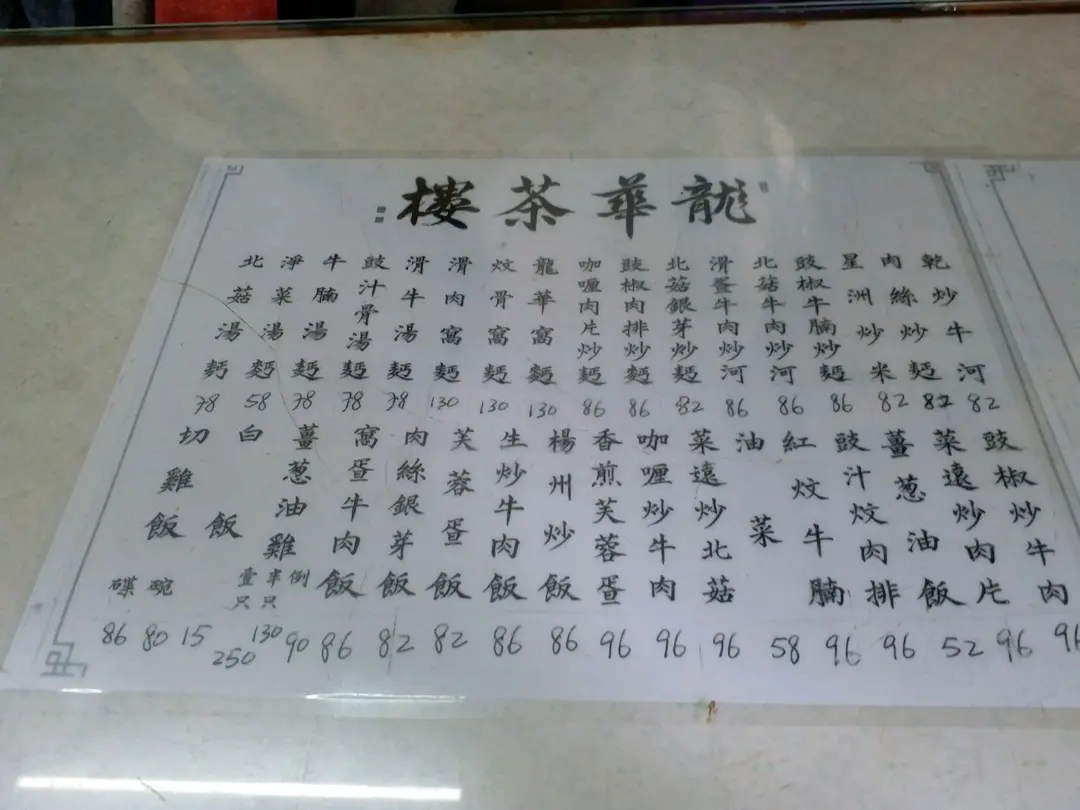 龍華茶樓
乾炒牛河 82
肉絲炒麪 82
星洲炒米 82
豉椒牛腩炒麪 86
北菇牛肉炒河 86
滑蛋牛肉炒河 86
北菇銀芽炒麪 82
豉椒肉排炒麪 86
咖喱肉片炒麪 86
龍華窩麪 130
炆骨窩麪 130
滑肉窩麪 130
滑牛湯麪 78
豉汁骨湯麪 78
牛腩湯麪 78
淨菜湯麪 58
北菇湯麪 78
豉椒炒牛肉 96
菜遠炒肉片 96
薑葱油飯 52
豉汁炆肉排 96
紅炆牛腩 96
油菜 58
菜遠炒北菇 96
咖喱炒牛肉 96
香煎芙蓉蛋 96
楊州炒飯 86
生炒牛肉飯 86
芙蓉蛋飯 82
肉絲銀芽飯 82
窩蛋牛肉飯 86
薑葱油雞 例 90 半只 130 壹只 250
白飯 15
切雞飯 碗 80 碟 86